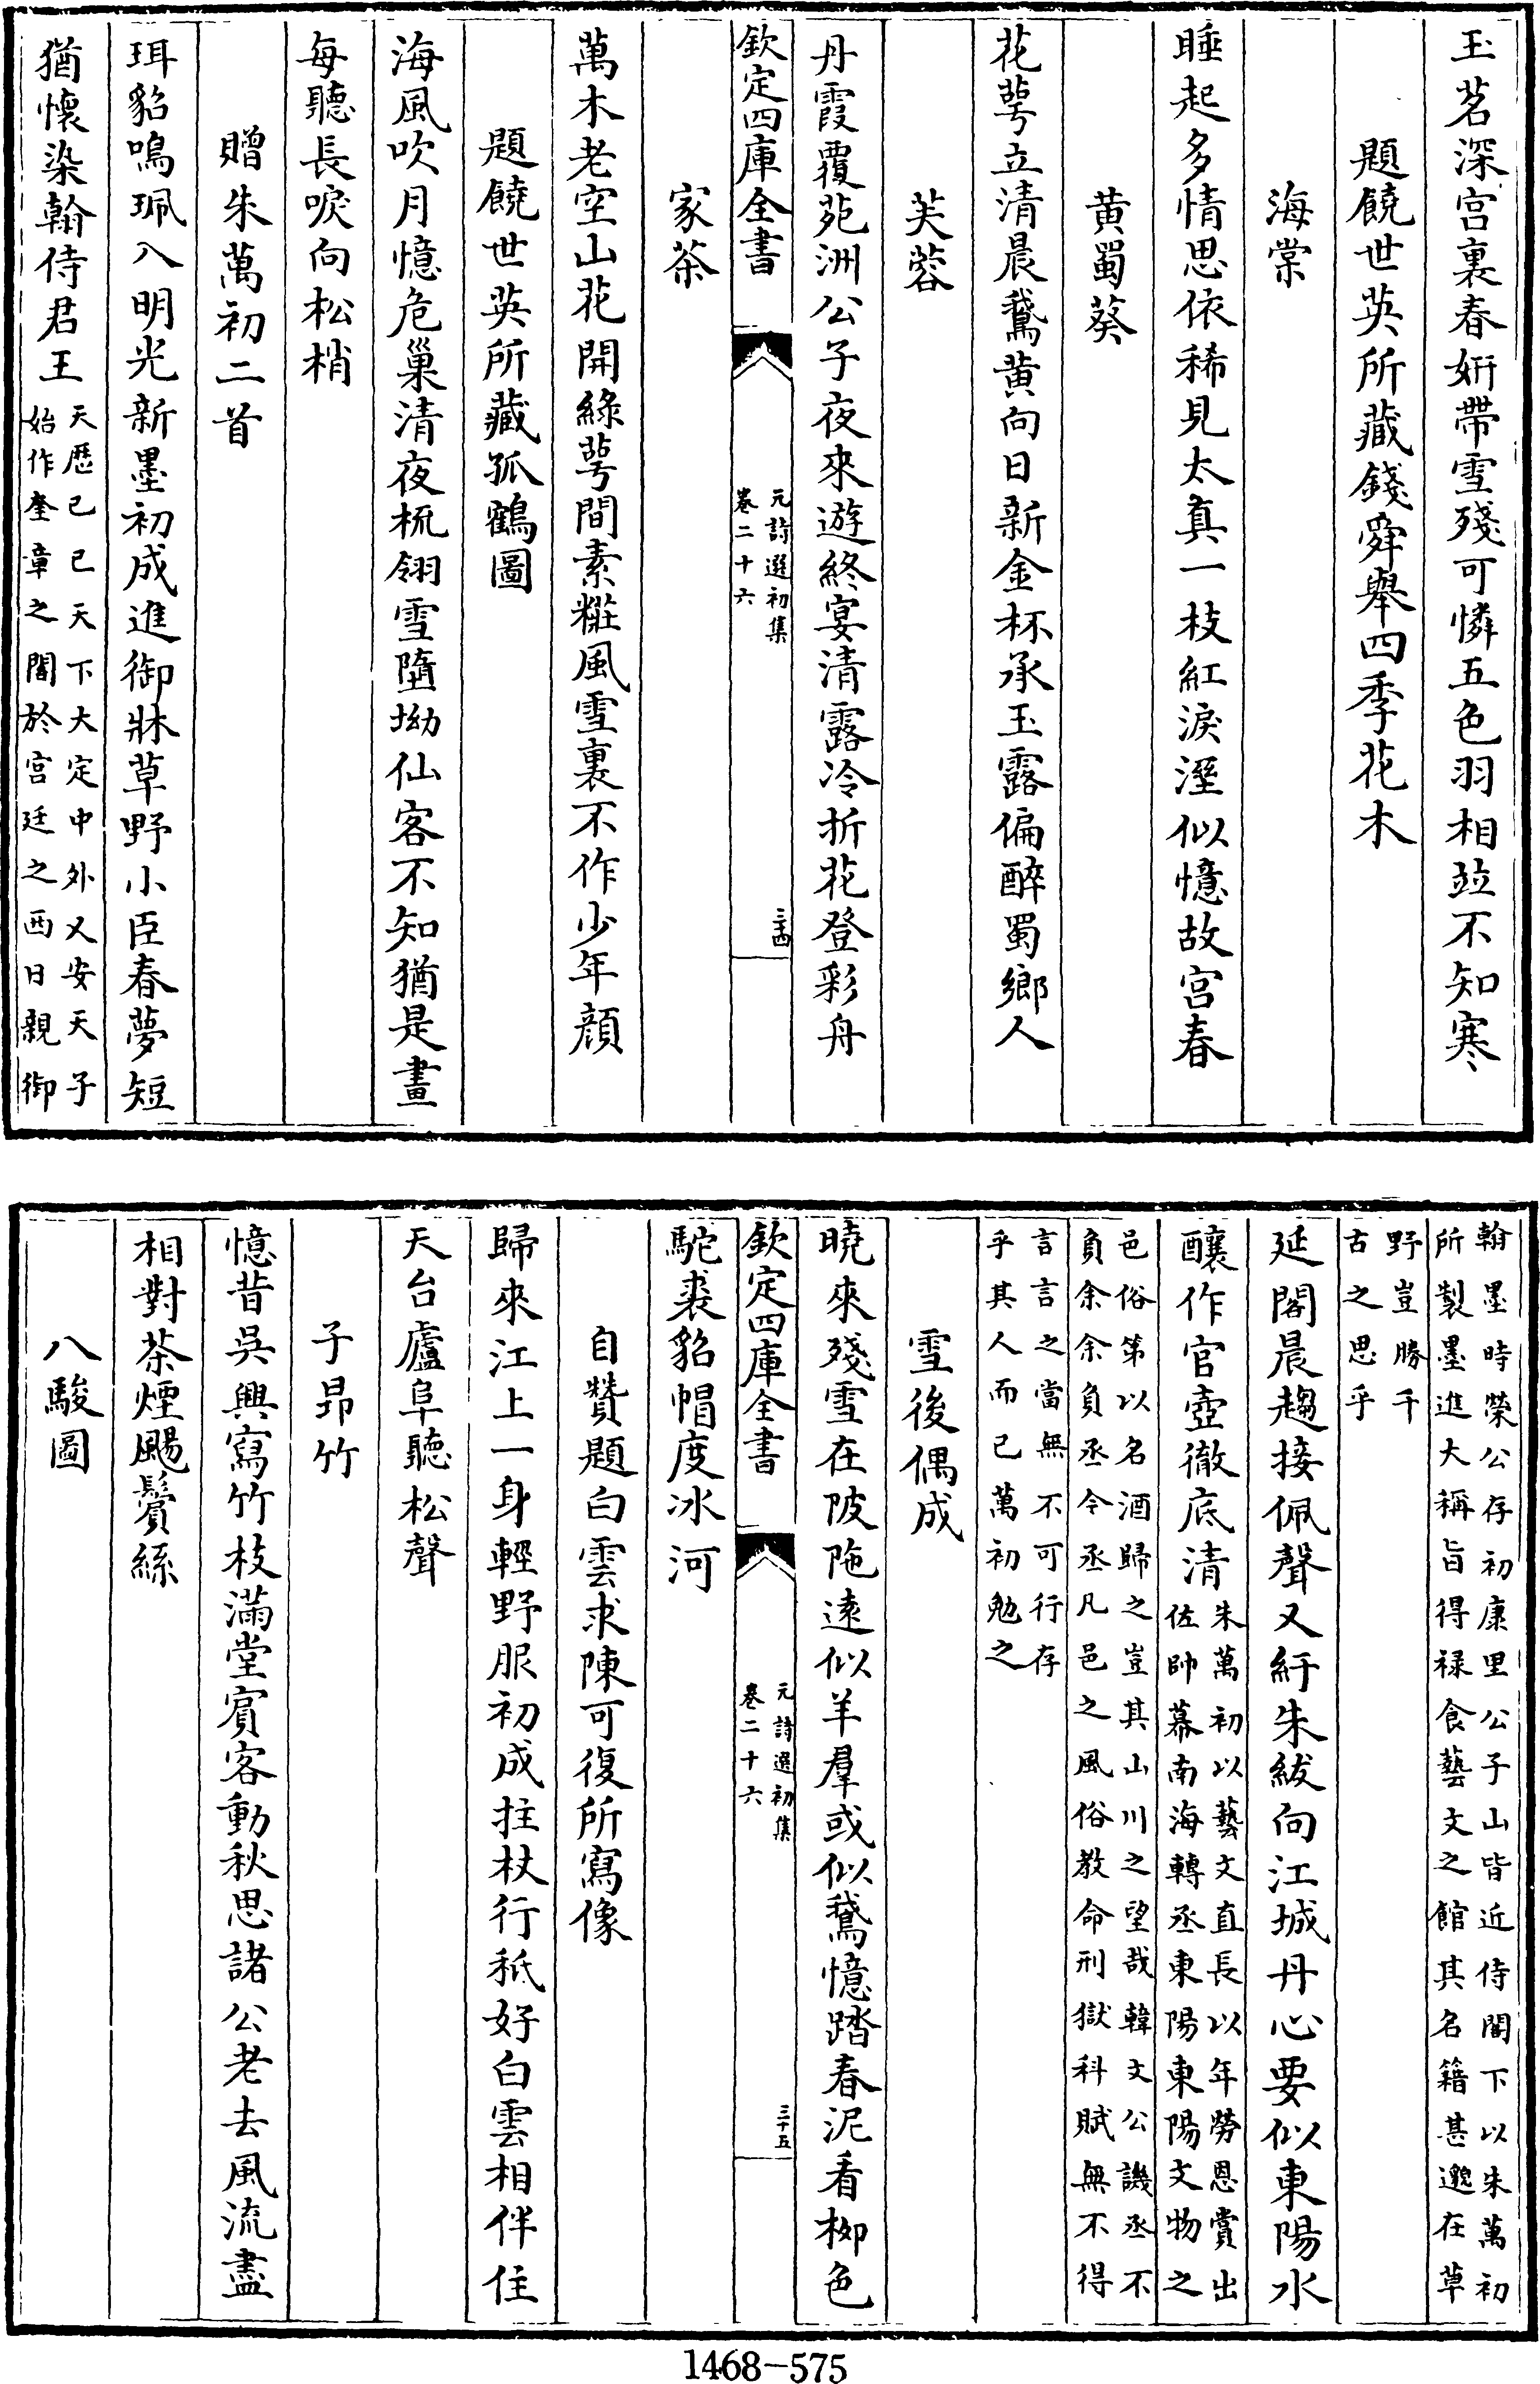 玉茗深宫裏春妍帶雪殘可憐五色羽相竝不知寒
題饒世英所藏錢舜舉四季花木
海棠
睡起多情思依稀見太真一枝紅淚溼似憶故宫春
黄蜀葵
花萼立清晨鵞黄向日新金杯承玉露偏醉蜀鄉人
芙蓉
丹霞覆苑洲公子夜來遊終宴清露冷折花登彩舟
欽定四庫全書
元詩選初集
卷二十六
三十四
家茶
萬木老空山花開綠萼間素糚風雪裏不作少年顔
題饒世英所藏孤鶴圖
海風吹月憶危巢清夜梳翎雪墮坳仙客不知猶是畫
每聽長唳向松梢
贈朱萬初二首
珥貂鳴珮入明光新墨初成進御牀草野小臣春夢短
猶懷染翰侍君王
天厯已已天下大定中外乂安天子
始作奎章之閣於宫廷之西日親御
翰墨時榮公存初康里公子山皆近侍閣下以朱萬初
所製墨進大稱旨得禄食藝文之館其名籍甚邈在草
野豈勝千
古之思乎
延閣晨趨接佩聲又紆朱紱向江城丹心要似東陽水
釀作官壺徹底清
朱萬初以藝文直長以年勞恩賞出
佐帥幕南海轉丞東陽東陽文物之
邑俗第以名酒歸之豈其山川之望哉韓文公譏丞不
負余余負丞今丞凡邑之風俗教命刑獄科賦無不得
言言之當無不可行存
乎其人而已萬初勉之
雪後偶成
曉來殘雪在陂陁遠似羊羣或似鵞憶踏春泥看柳色
欽定四庫全書
元詩選初集
卷二十六
三十五
駝裘貂帽度冰河
自贊題白雲求陳可復所寫像
歸來江上一身輕野服初成拄杖行秪好白雲相伴住
天台廬阜聽松聲
子昻竹
憶昔吳興寫竹枝滿堂賓客動秋思諸公老去風流盡
相對茶煙颺鬢絲
八駿圖
1468-575